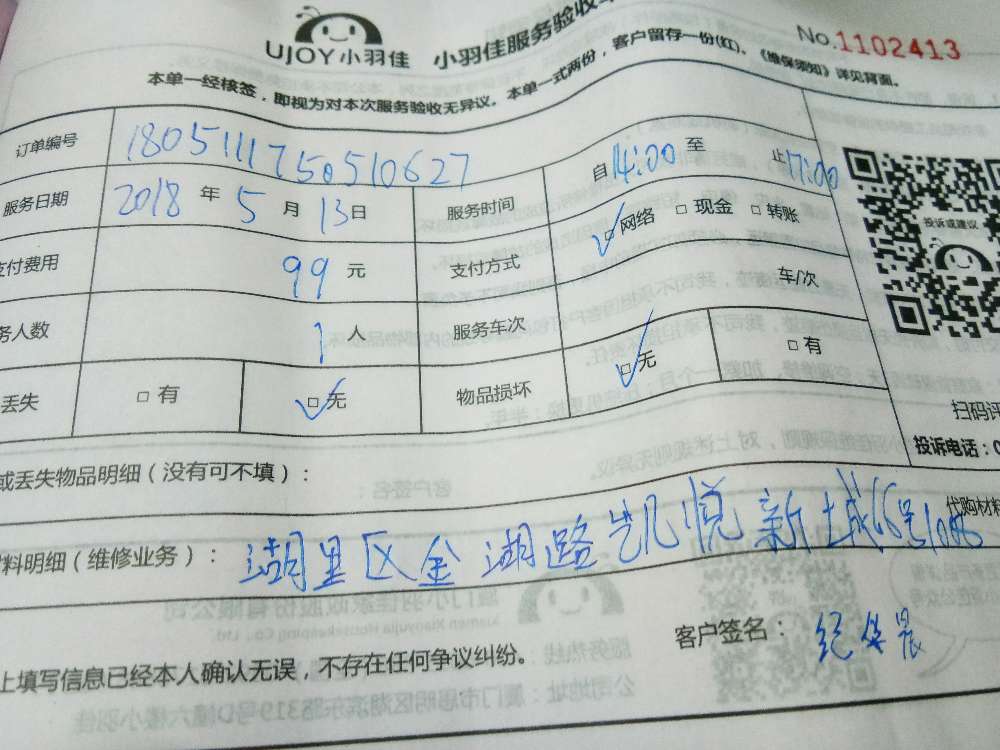 UJOY小羽佳 小羽佳服务验收
No.1102413
本单一经核签，即视为对本次服务验收无异议。本单一式两份，客户留存一份(红)。《维保须知》详见背面。
订单编号 1805111750510627
服务日期 2018 年 5 月 13 日 服务时间 自 14:00 至 止 17:00
支付费用 99 元 支付方式 □网络 □现金 □转账
务人数 1 人 服务车次 车/次
丢失 □有 □无 物品损坏 □无 □有
投诉或建议
扫码评
投诉电话：0
或丢失物品明细（没有可不填）：
代购材料
料明细（维修业务）： 湖里区金湖路凯悦新城
客户签名：
上填写信息已经本人确认无误，不存在任何争议纠纷。